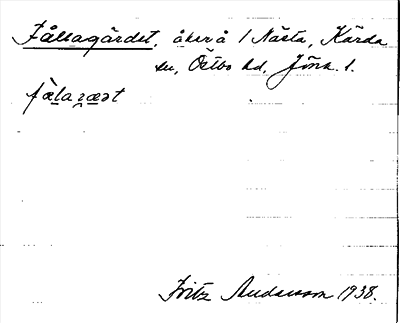 Fållagärdet, åker å 1 Nästa, Kärda
sn, Östbo hd, Jönk. l.
Fritz Andersson 1938.